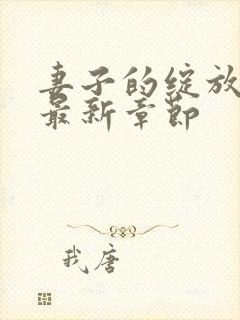 妻子的绽放
最新章节
我唐